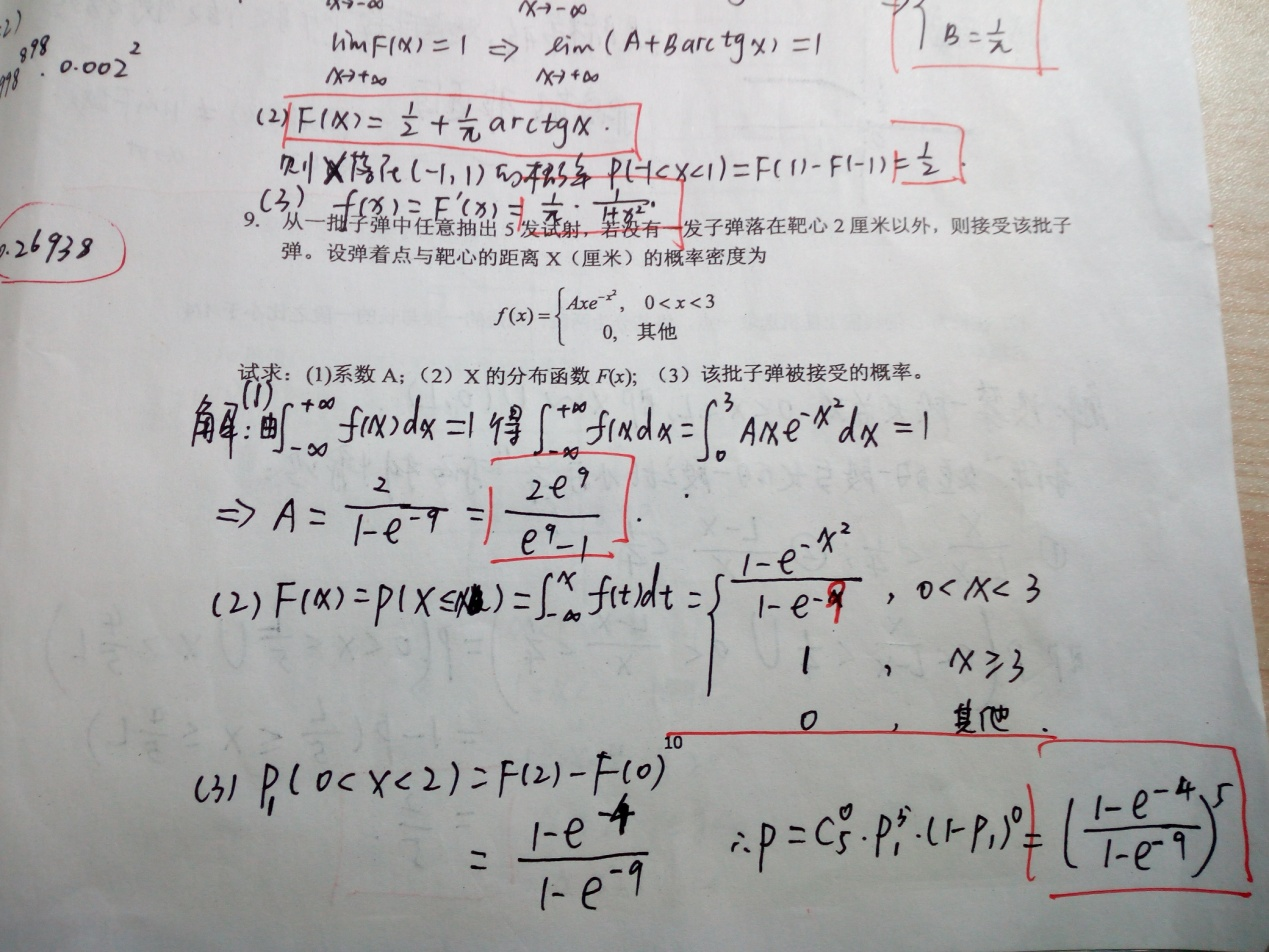 2)
998^898 · 0.002^2
x→-∞ x→-∞
lim F(x) = 1 ⇒ lim (A+Barctgx) = 1
x→+∞ x→+∞
B = 1/π
(2) F(x) = 1/2 + 1/π arctgx.
则X落在(-1,1)的概率 P(-1<x<1)=F(1)-F(-1)=1/2.
(3) f(x)=F'(x)=1/π·1/(1+x²).
0.26938
9. 从一批子弹中任意抽出 5 发试射，若没有一发子弹落在靶心 2 厘米以外，则接受该批子
弹。设弹着点与靶心的距离 X（厘米）的概率密度为
f(x)={Axe^{-x²}, 0<x<3
0, 其他
试求：(1)系数 A；（2）X 的分布函数 F(x)；（3）该批子弹被接受的概率。
解:(1)由∫_{-∞}^{+∞} f(x)dx=1 得 ∫_{-∞}^{+∞} f(x)dx=∫_0^3 Axe^{-x²}dx=1
⇒ A = 2/(1-e^{-9}) = 2e^9/(e^9-1).
(2) F(x)=P(X≤x)=∫_{-∞}^x f(t)dt={(1-e^{-x²})/(1-e^{-9}) , 0<x<3
1 , x≥3
0 , 其他.
10
(3) P₁(0<x<2)=F(2)-F(0)
= (1-e^{-4})/(1-e^{-9}) ∴p=C_5^0·P₁^5·(1-P₁)^0=((1-e^{-4})/(1-e^{-9}))^5